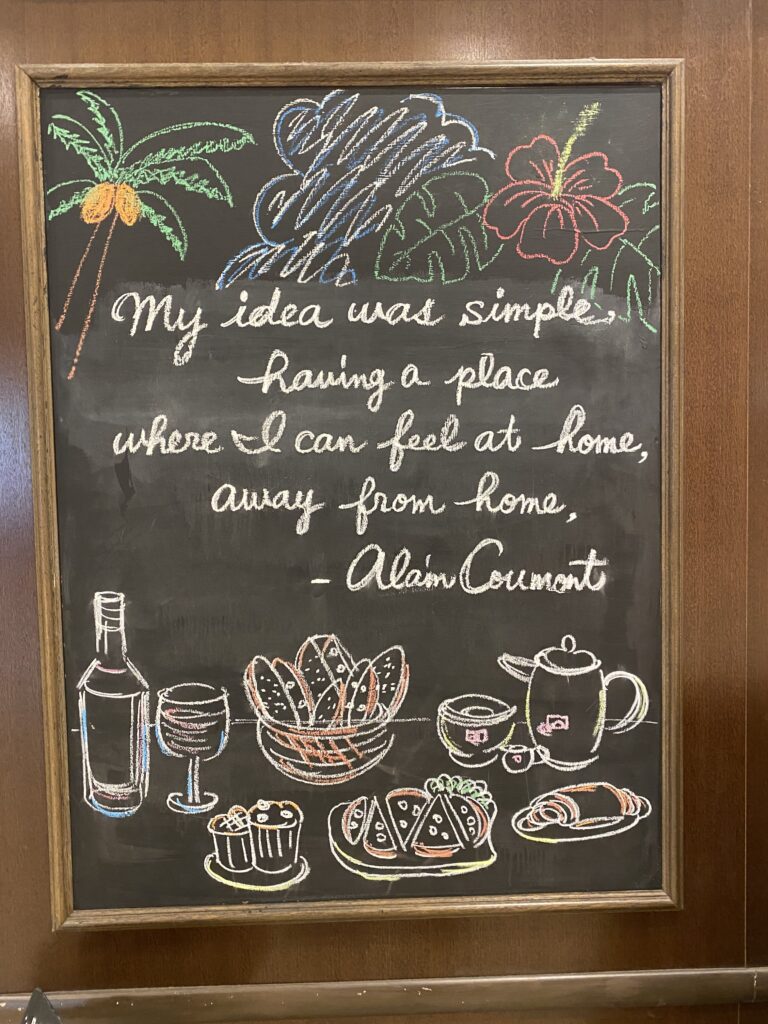 My idea was simple,
having a place
where I can feel at home,
away from home,
- Alain Coumont